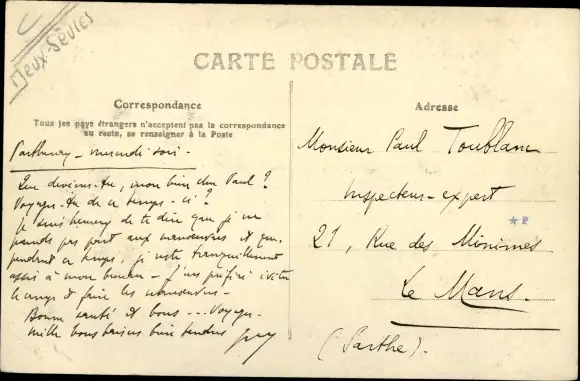 Deux-Sèvres
CARTE POSTALE
Correspondance
Tous les pays étrangers n'acceptent pas la correspondance
au recto, se renseigner à la Poste
Adresse
Parthenay - mercredi soir -
Que deviens-tu, mon bien cher Paul ?
Voyages-tu de ce temps-ci ?
Je suis heureux de te dire que je ne
prends pas part aux manœuvres et que,
pendant ce temps, je reste tranquillement
assis à mon bureau - J'ai préféré éviter
le camp et faire les
Bonne santé et bons ... Voyages.
Mille bons baisers bien tendres Guy
Monsieur Paul Toublanc
Inspecteur-expert
21, Rue des Minimes
Le Mans.
(Sarthe).